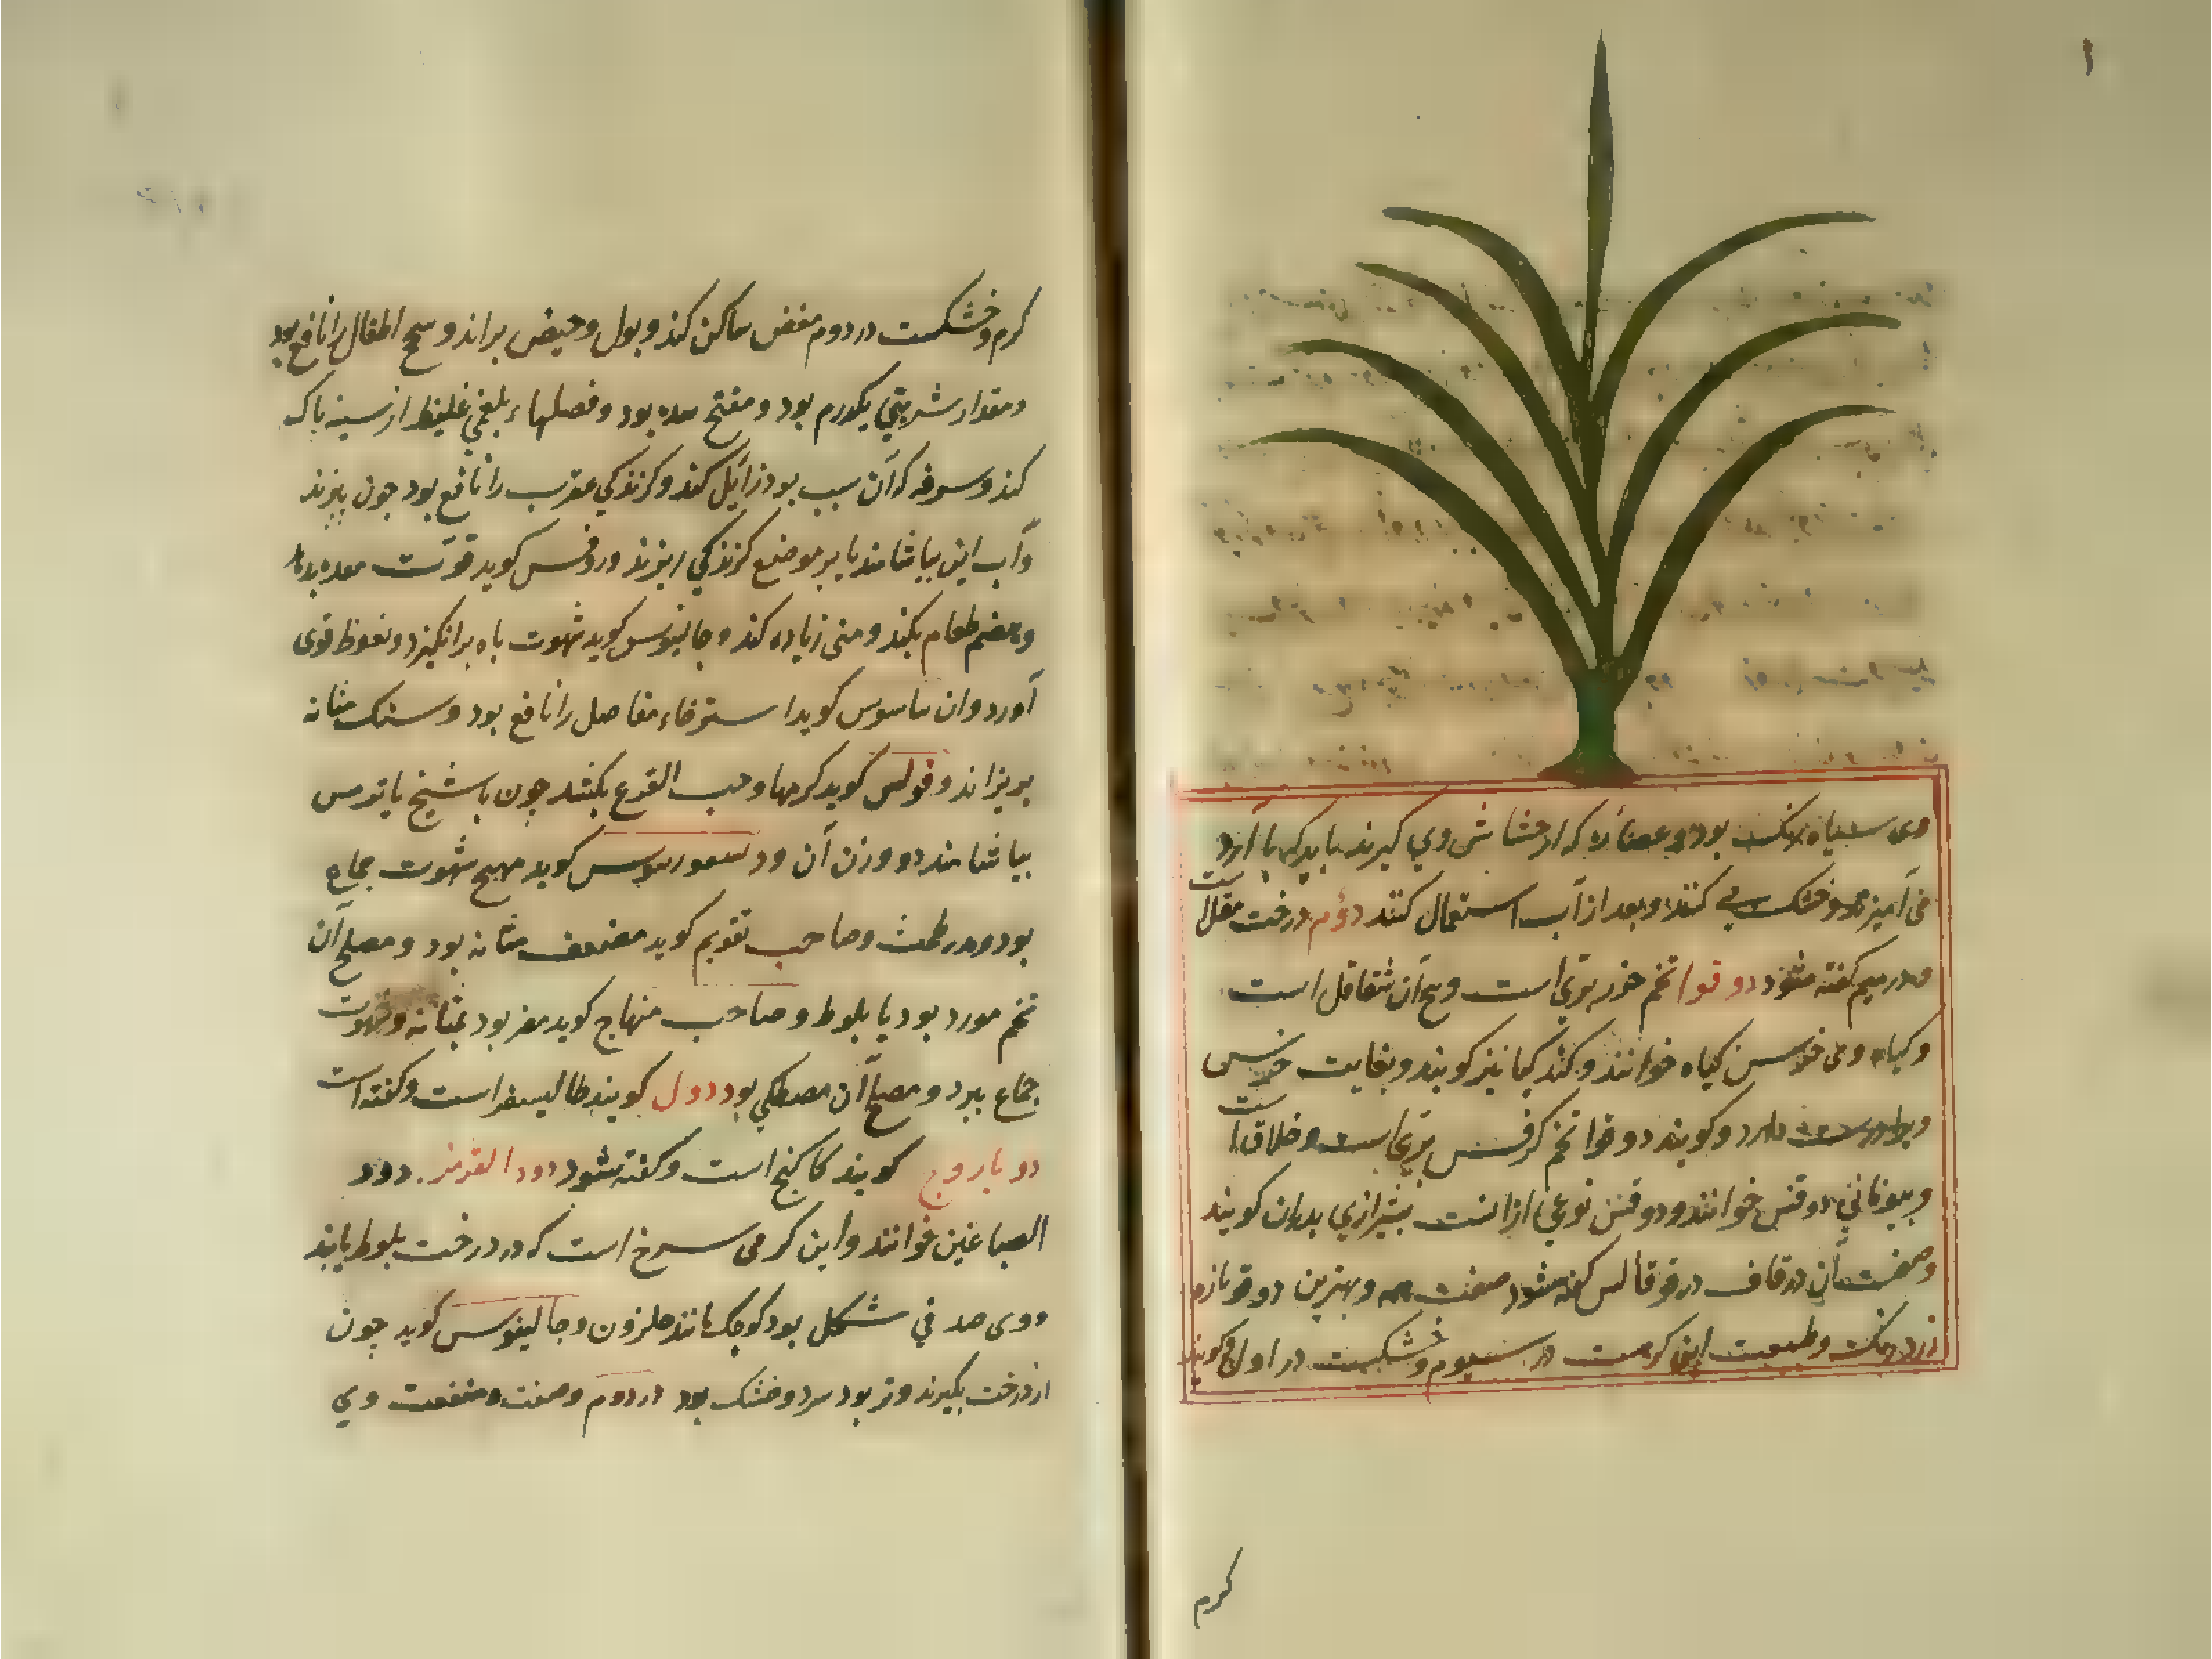 وی سیاه رنک بود و عصاره که از حشایش وی کیرند باید که با آرد
می آمیزند و خشک می کنند و بعد از آب استعمال کنند دوم درخت مقل است
و در میم کفته شود دوقوا تخم جزر بری است و بیخ آن شقاقل است
و کیاه وی خرس کیاه خوانند و کنذر کیا نیز کویند و بغایت خرس
دارد و کویند دوقوا تخم کرفس بری است و خلاف است
و بیونانی دوقس خوانند و دوقس نوعی از انست بشیرازی بدران کویند
و صفت آن در قاف در قوقالس کفته شود صفت وبهترین دوقو تازه
زرد رنک و طبیعت این کرمست در سیوم و خشکست در اول و کویند
کرم
کرم و خشکست در دوم مغص ساکن کند و بول و حیض براند و سحج اطفال را نافع بود
و مقدار شربتی یکدرم بود و مفتح سده بود و فصلهاء بلغمی غلیظ از سینه باک
کند و سرفه که آن سبب بود زایل کند و کزندکی عقرب را نافع بود جون بپزند
و آب این بیاشامند یا بر موضع کزندکی ریزند و روفس کوید قوّت معده بدهد
و هضم طعام بکند و منی زیاده کند و جالینوس کوید شهوت باه برانکیزد و نعوظ قوی
آورد وان ماسوس کوید استرخاء مفاصل را نافع بود و سنک مثانه
بریزاند و فولس کوید کرمها و حب القرع بکشد چون با شیخ یا ترمس
بیاشامند دو وزن آن و دیسقوریدوس کوید مهیج شهوت جماع
بود و مدر طمث و صاحب تقویم کوید مضعف مثانه بود و مصلح آن
تخم مورد بود یا بلوط و صاحب منهاج کوید مضر بود بمثانه و شهوت
جماع ببرد و مصلح آن مصطکی بود دول کویند طالیسفر است و کفته است
دو باروج کویند کاکنج است و کفته شود دود القرمز. دود
الصباغین خوانند و این کرمی سرخ است که در درخت بلوط یابند
ووی صدفی شکل بود کوجک مانند حلزون و جالینوس کوید چون
از درخت بکیرند و تر بود سرد و خشک بود در دوم و صفت و منفعت وی